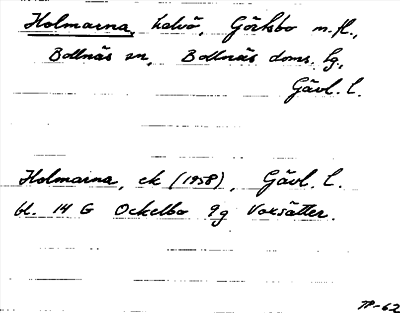 Holmarna, halvö, Göksbo m.fl.,
Bollnäs sn, Bollnäs doms. hg,
Gävl. l.
Holmarna, ek (1958), Gävl. l.
bl. 14 G Ockelbo 9g Voxsätter.
TP-62